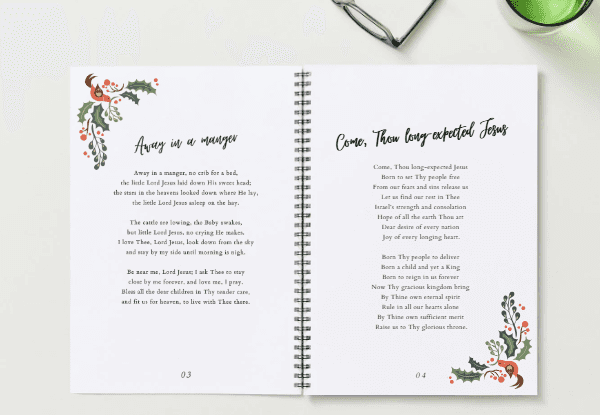 Away in a manger
Away in a manger, no crib for a bed,
the little Lord Jesus laid down His sweet head;
the stars in the heavens looked down where He lay,
the little Lord Jesus asleep on the hay.
The cattle are lowing, the Baby awakes,
but little Lord Jesus, no crying He makes.
I love Thee, Lord Jesus, look down from the sky
and stay by my side until morning is nigh.
Be near me, Lord Jesus; I ask Thee to stay
close by me forever, and love me, I pray.
Bless all the dear children in Thy tender care,
and fit us for heaven, to live with Thee there.
03
Come, Thou long-expected Jesus
Come, Thou long-expected Jesus
Born to set Thy people free
From our fears and sins release us
Let us find our rest in Thee
Israel's strength and consolation
Hope of all the earth Thou art
Dear desire of every nation
Joy of every longing heart.
Born Thy people to deliver
Born a child and yet a King
Born to reign in us forever
Now Thy gracious kingdom bring
By Thine own eternal spirit
Rule in all our hearts alone
By Thine own sufficient merit
Raise us to Thy glorious throne.
04